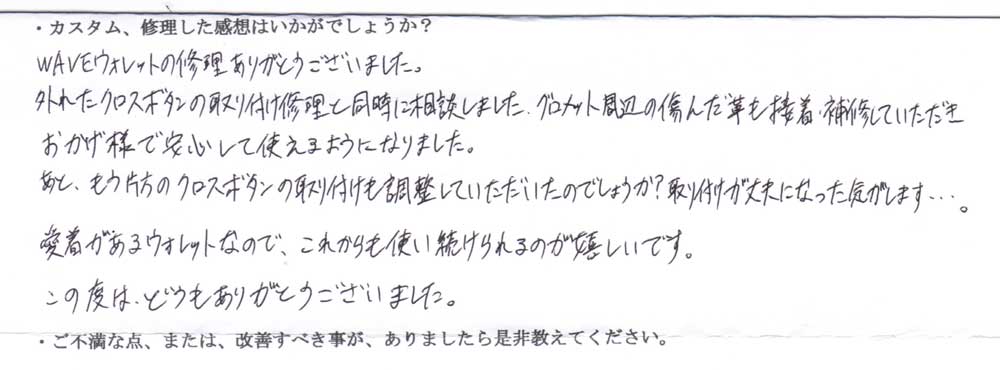 ・カスタム、修理した感想はいかがでしょうか？
WAVEウォレットの修理ありがとうございました。
外れたクロスボタンの取り付け修理と同時に相談しました、グロメット周辺の傷んだ革も接着・補修していただき
おかげ様で安心して使えるようになりました。
あと、もう片方のクロスボタンの取り付けも調整していただいたのでしょうか？取り付けが丈夫になった気がします…。
愛着があるウォレットなので、これからも使い続けられるのが嬉しいです。
この度は、どうもありがとうございました。
・ご不満な点、または、改善すべき事が、ありましたら是非教えてください。